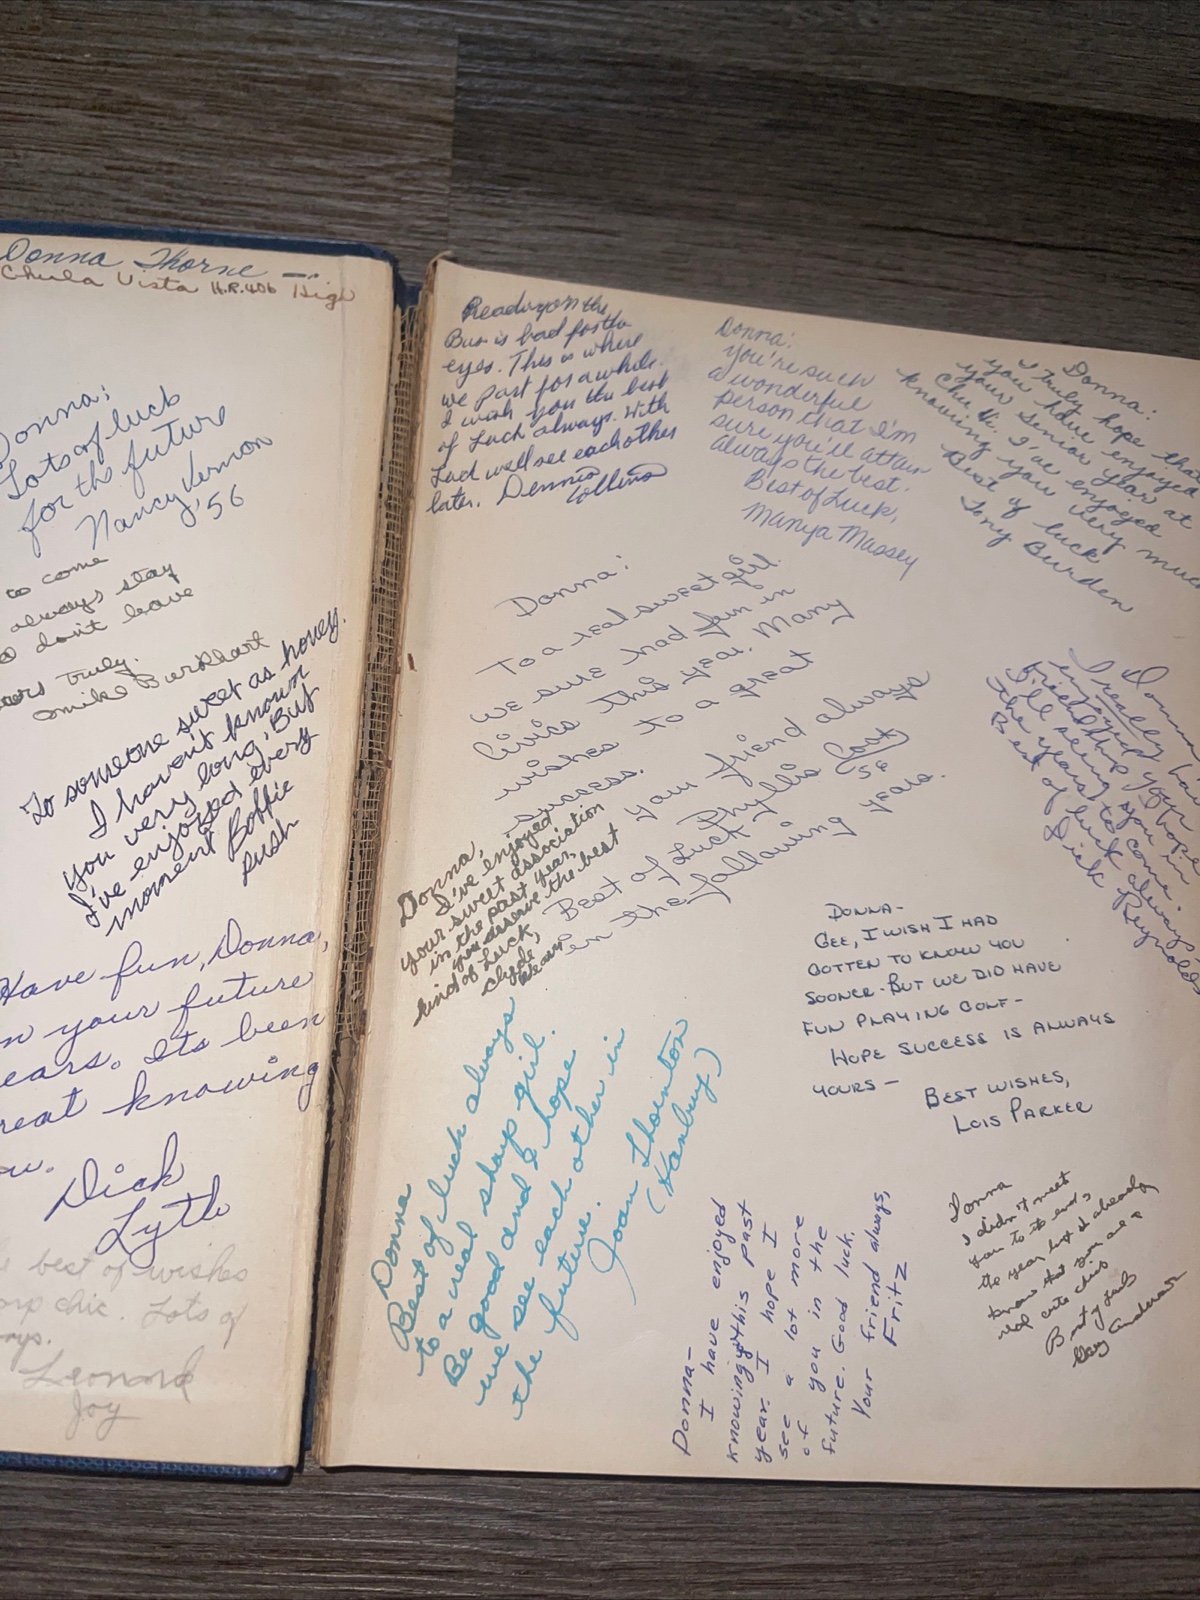 Donna Thorne
Chula Vista H.R. 406 High
Donna:
Lots of luck
for the future
Nancy Vernon
'56
to come
always stay
don't leave
Truly.
Mike Burkhart
To someone sweet as honey.
I haven't known
you very long, But
I've enjoyed every
moment Boffie
Rush
Have fun, Donna,
your future
Its been
knowing
Dick
Lytle
best of wishes
chic. Lots of
Leonard
Joy
Reading on the
Bus is bad for the
eyes. This is where
we part for a while.
I wish you the best
of Luck always. With
Luck we'll see each other
later. Dennis
Collins
Donna:
You're such
a wonderful
person that I'm
sure you'll attain
always the best.
Best of Luck,
Manya Massey
Donna:
I truly hope that
you have enjoyed
your Senior year at
Chu Hi. I've enjoyed
knowing you very much
Best of luck
Tony Burden
Donna:
To a real sweet girl.
We sure had fun in
Civics this year. Many
wishes to a great
success.
Your friend always
Phyllis
56
Best of Luck
in the following years.
Donna
I really have
enjoyed your
friendship & hope
I'll seeing you in
the years to come.
Best of luck always,
Dick Reynolds
Donna,
I've enjoyed
your sweet association
in the past year,
you deserve the best
kind of Luck,
Clyde
DONNA-
GEE, I WISH I HAD
GOTTEN TO KNOW YOU
SOONER - BUT WE DID HAVE
FUN PLAYING GOLF -
HOPE SUCCESS IS ALWAYS
YOURS -
BEST WISHES,
LOIS PARKER
Donna
Best of luck always
to a real sharp girl.
Be good and I hope
we see each other in
the future.
Joan Thornton
Donna-
I have enjoyed
knowing this past
year. I hope I
see a lot more
of you in the
future. Good luck.
Your friend always,
Fritz
Donna
I didn't meet
you to the end
the year but I already
know that you are a
real cute chic
Best of luck
Gary Anderson